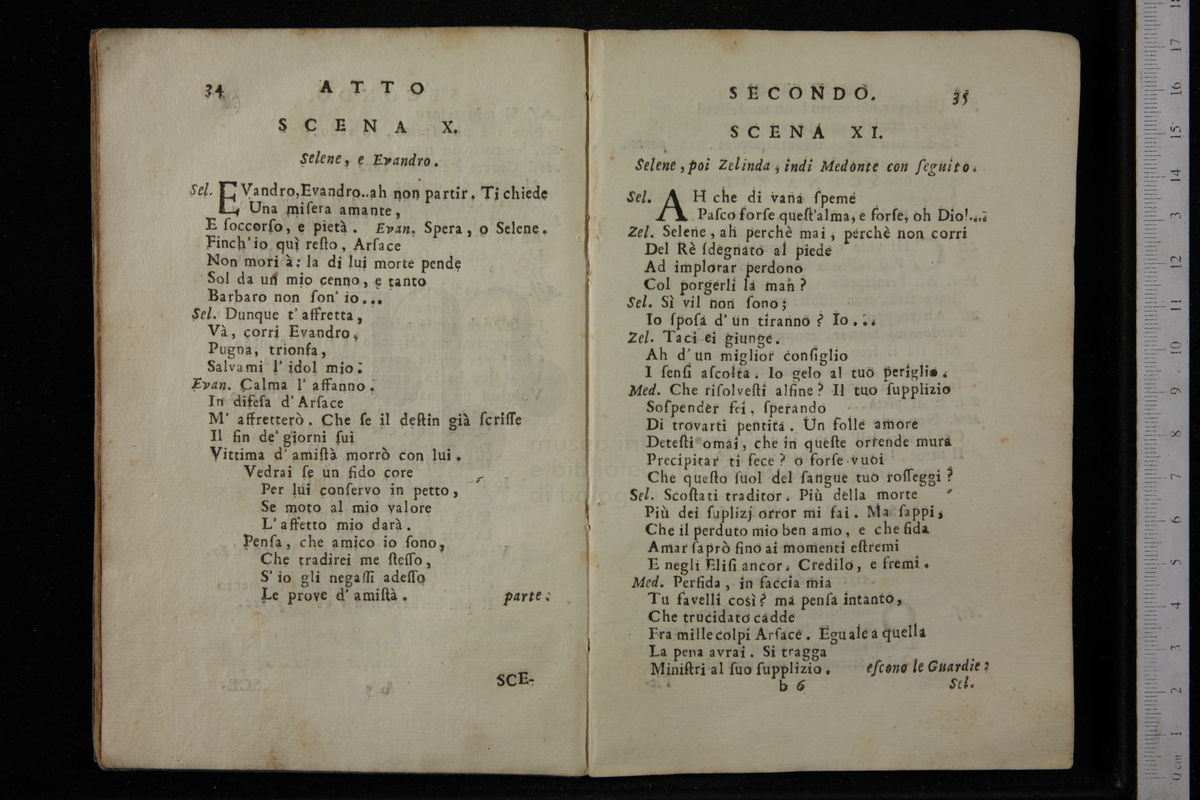 34 ATTO
SCENA X.
Selene, e Evandro.
Sel. EVandro, Evandro..ah non partir. Ti chiede
Una miſera amante,
E ſoccorſo, e pietà. Evan. Spera, o Selene.
Finch'io quì reſto, Arſace
Non mori à: la di lui morte pende
Sol da un mio cenno, e tanto
Barbaro non ſon' io...
Sel. Dunque t'affretta,
Và, corri Evandro,
Pugna, trionfa,
Salvami l'idol mio.
Evan. Calma l'affanno.
In difeſa d'Arſace
M'affretterò. Che ſe il deſtin già ſcriſſe
Il fin de'giorni ſui
Vittima d'amiſtà morrò con lui.
Vedrai ſe un fido core
Per lui conſervo in petto,
Se moto al mio valore
L'affetto mio darà.
Penſa, che amico io ſono,
Che tradirei me ſteſſo,
S'io gli negaſſi adeſſo
Le prove d'amiſtà. parte.
SCE-
SECONDO. 35
SCENA XI.
Selene, poi Zelinda, indi Medonte con ſeguito.
Sel. AH che di vana ſpeme
Paſco forſe queſt'alma, e forſe, oh Dio!....
Zel. Selene, ah perchè mai, perchè non corri
Del Rè ſdegnato al piede
Ad implorar perdono
Col porgerli la man?
Sel. Sì vil non ſono;
Io ſpoſa d'un tiranno? Io...
Zel. Taci ei giunge.
Ah d'un miglior conſiglio
I ſenſi aſcolta. Io gelo al tuo periglio.
Med. Che riſolveſti alfine? Il tuo ſupplizio
Soſpender fei, ſperando
Di trovarti pentita. Un folle amore
Deteſti omai, che in queſte orrende mura
Precipitar ti fece? o forſe vuoi
Che queſto ſuol del ſangue tuo roſſeggi?
Sel. Scoſtati traditor. Più della morte
Più dei ſuplizj orror mi fai. Ma ſappi,
Che il perduto mio ben amo, e che fida
Amar ſaprò fino ai momenti eſtremi
E negli Eliſi ancor. Credilo, e fremi.
Med. Perfida, in faccia mia
Tu favelli così? ma penſa intanto,
Che trucidato cadde
Fra mille colpi Arſace. Eguale a quella
La pena avrai. Si tragga
Miniſtri al ſuo ſupplizio. eſcono le Guardie.
b 6 Sel.